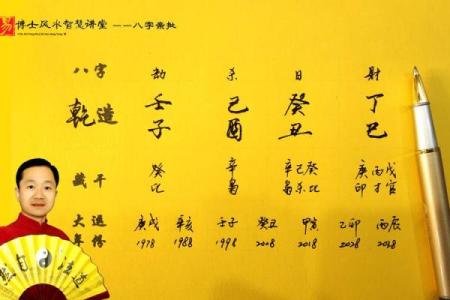 易 博士风水智慧讲堂 ——八字案批
八字 劫 杀 日 财
乾造 壬 己 癸 丁
子 酉 丑 巳
藏干 癸 辛 辛己癸 庚丙戊
比 枭 枭杀比 印才官
大运 庚戌 辛亥 壬子 癸丑 甲寅 乙卯 丙辰
年份 1978 1988 1998 2008 2018 2028 2038
道法自然